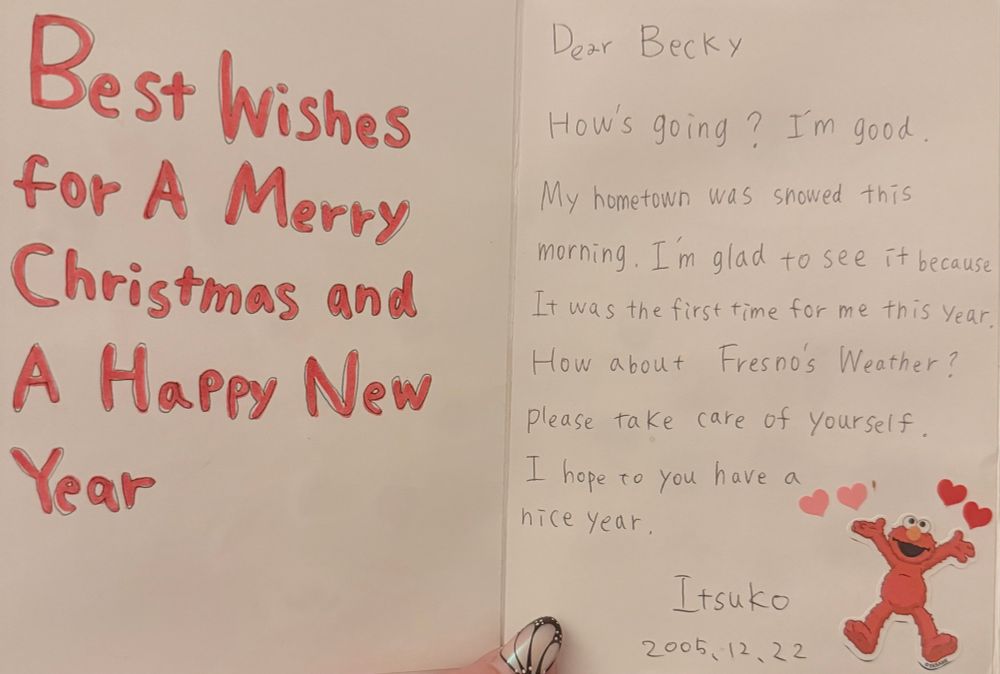 Best Wishes
for A Merry
Christmas and
A Happy New
Year
Dear Becky
How's going? I'm good.
My hometown was snowed this
morning. I'm glad to see it because
It was the first time for me this year.
How about Fresno's Weather?
please take care of yourself.
I hope to you have a
nice year.
Itsuko
2005.12.22